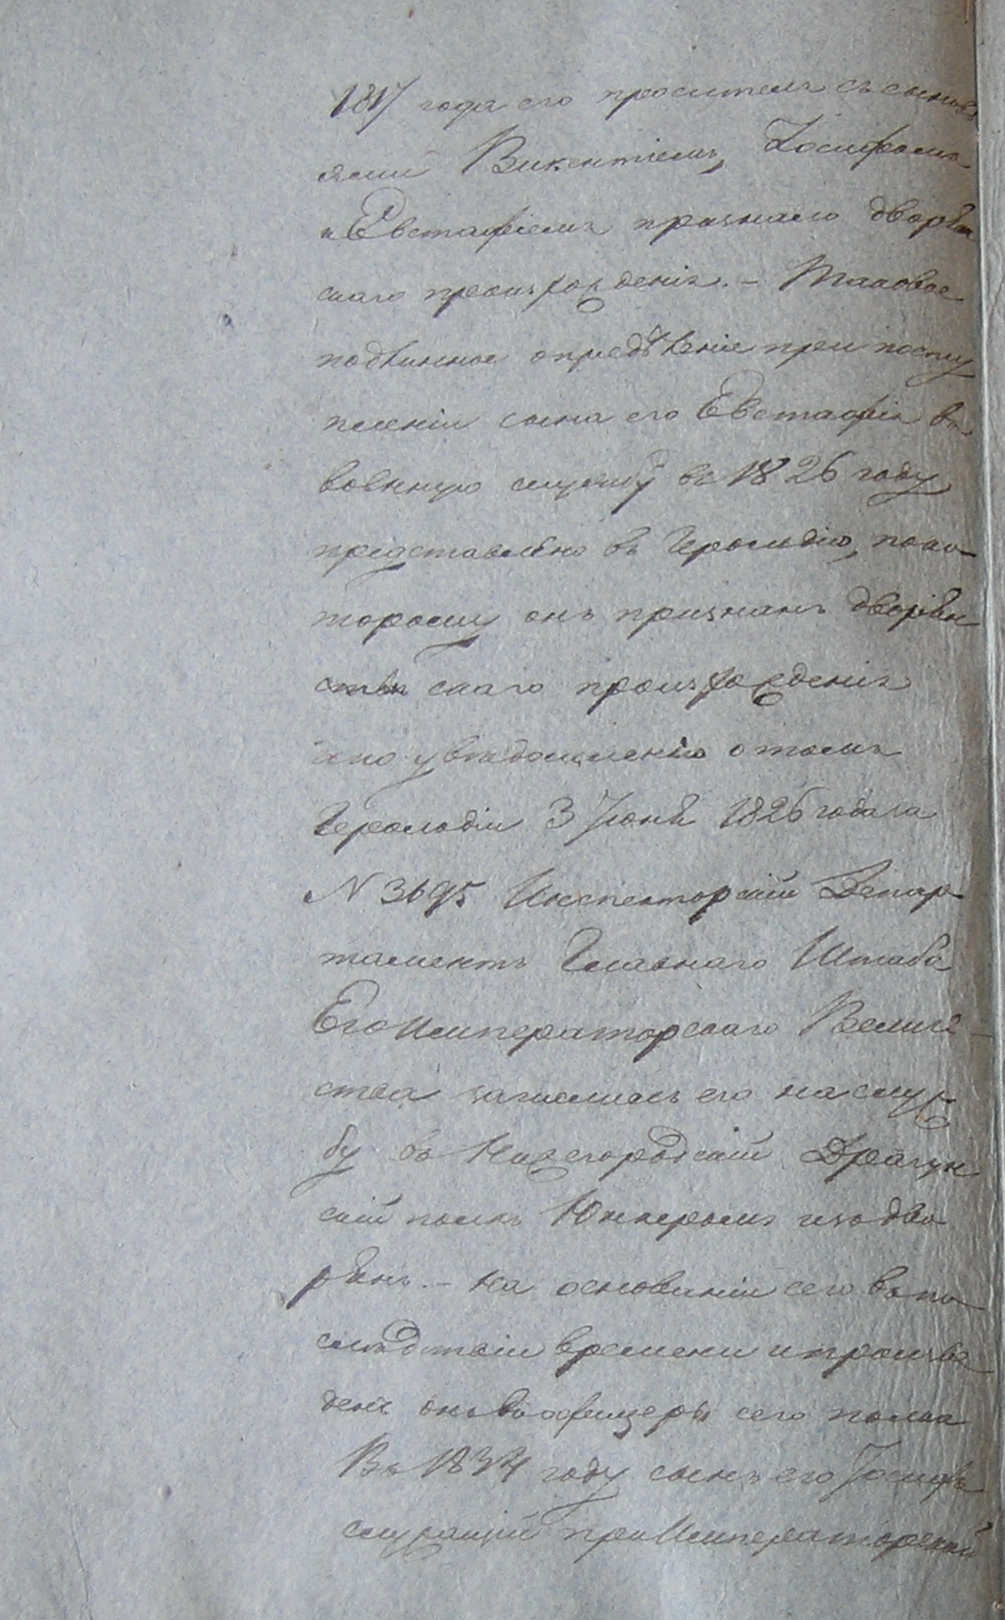 1817 года его проситель съ сыновь
ями Викентіемъ, Іосифомъ
и Евстафіемъ признаго дворян
скаго происхожденія. – Таковое
подлинное определеніе при посту
пленіи сына его Евстафія въ
военную службу въ 1826 году
представлено въ Герольдію, пока
торому онъ признанъ дворян
скаго происхожденія
ипо уведомленію о томъ
Герольдіи 3 Іюня 1826 года за
N 3695 Инспекторскій Депар
таментъ Главнаго Штаба
Его Императорскаго Величе-
ства зачислилъ его на служ
бу въ Нижегородскій Драгун
скій полкъ Юнкеромъ изъ дво
рянъ. – На основаніи сего въ по
следствіи времени и произве
денъ онъ во офицеры сего полка
Въ 1834 году сынъ его Іосифъ
служащій при Императорской